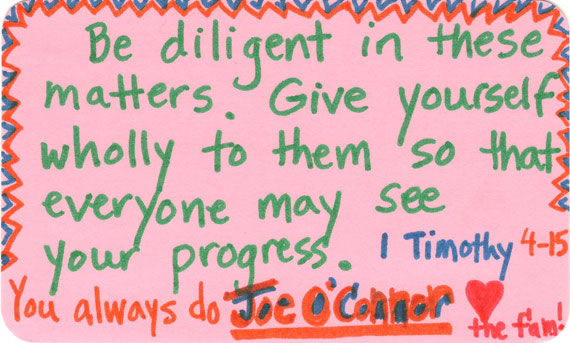 Be diligent in these
matters. Give yourself
wholly to them so that
everyone may see
your progress. 1 Timothy 4-15
You always do Joe O'Connor
the fam!